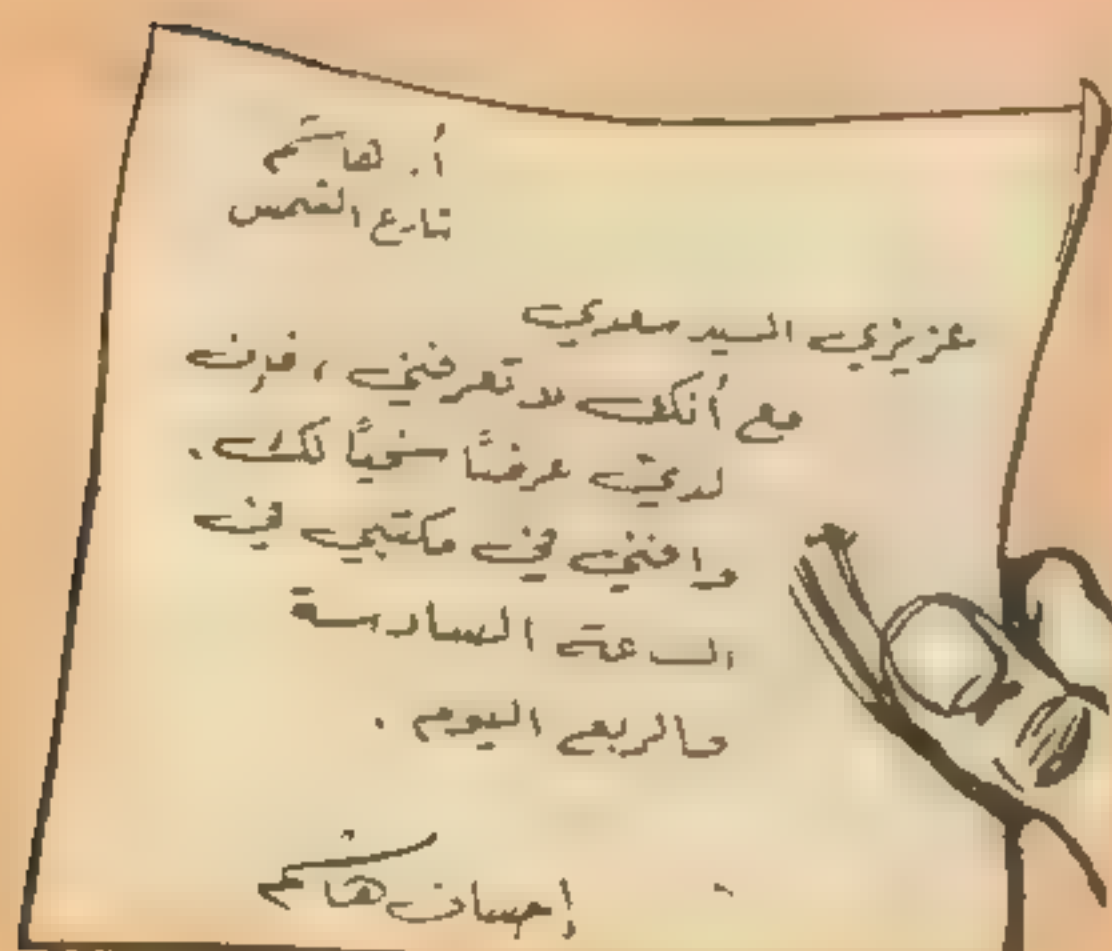 أ. هاشم
شارع الشمس
عزيزي السيد سعدي
مع أنك لا تعرفني، فإن
لديّ عرضًا سخيًا لك.
وافني في مكتبي في
الساعة السادسة
والربع اليوم.
إحسان هاشم